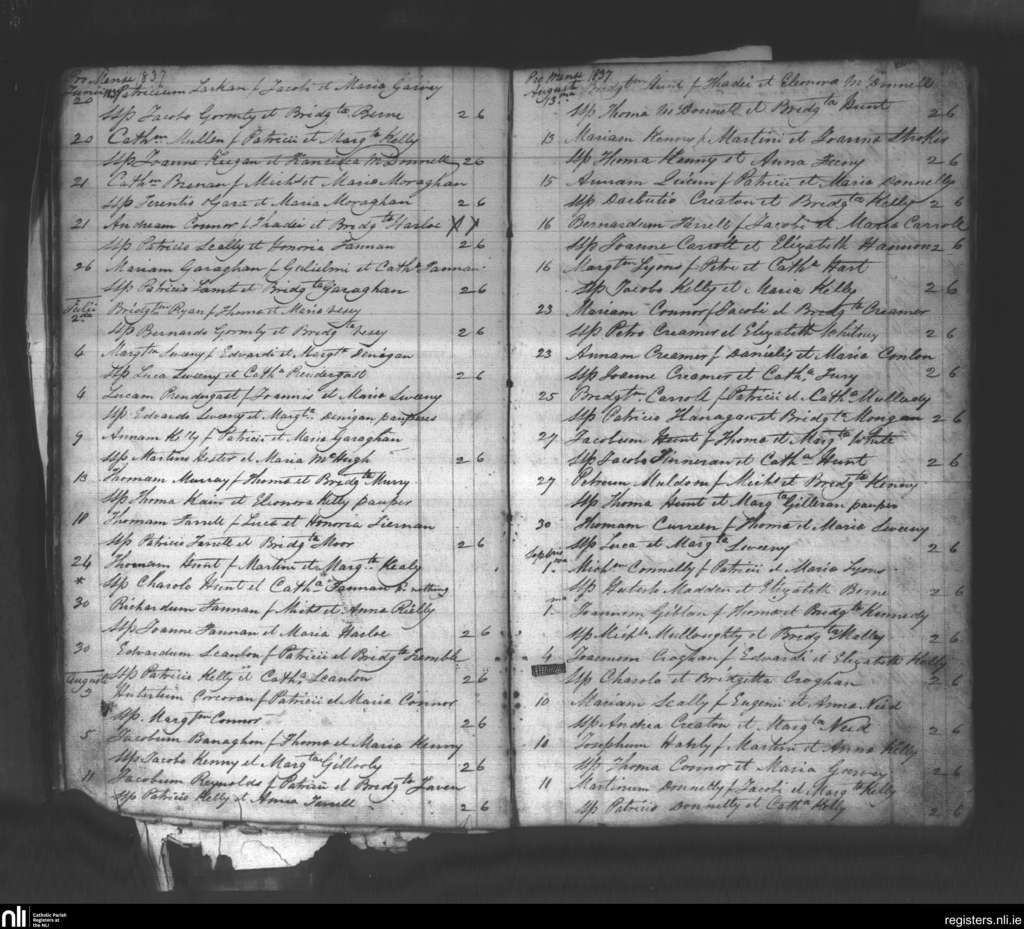 Pro Mense 1837
Junii 20 Patricium Larkan f Jacobi et Maria Garvey
Ssp Jacobo Gormly et Bridgta Berne 2 6
20 Cathm Mullen f Patricii et Margta Kelly
Ssp Joanne Keegan et Francisca McDonnell 2 6
21 Cathm Brenan f Michs et Maria Moraghan
Ssp Terentio OGara et Maria Moraghan 2 6
21 Andream Connor f Thadei et Bridgta Harloe
Ssp Patricio Scally et Honoria Fannan 2 6
26 Mariam Garaghan f Gulielmi et Catha Fannan
Ssp Patricio Lamb et Bridgta Garaghan 2 6
Julii 2da Bridgtm Ryan f Thoma et Maria
Ssp Bernardo Gormly et Bridgta 2 6
4 Margtm Sweny f Edvardi et Margta Denigan
Ssp Luca Sweeny et Catha Prendergast 2 6
4 Lucam Prendergast f Joannis et Maria Sweeny
Ssp Edvardo Sweny et Margta Denigan pauperes
9 Annam Kelly f Patricii et Maria Garaghan
Ssp Martino Hester et Maria McHugh 2 6
13 Thomam Murray f Thoma et Bridgta Murry
Ssp Thoma Kain et Eleonora Kelly pauper
18 Thomam Farrell f Luca et Honoria Tiernan
Ssp Patricio Farrell et Bridgta Moor 2 6
24 Thomam Hunt f Martini et Margta Kealy
* Ssp Charolo Hunt et Catha Fannan nothing
30 Richardum Fannan f Michs et Anna Reilly
Ssp Joanne Fannan et Maria Harloe 2 6
30 Edvardum Scanlon f Patricii et Bridgta Tremble
Ssp Patricio Kelly et Catha Scanlon 2 6
Augusti 3 Hubertum Corcoran f Patricii et Maria Connor
Ssp Margtm Connor 2 6
5 Jacobum Banaghan f Thoma et Maria Kenny
Ssp Jacobo Kenny et Margta Gillooly 2 6
11 Jacobum Reynolds f Patricii et Bridgta
Ssp Patricio Kelly et Anna Farrell 2 6
Pro Mense 1837
Augusti 13 Bridgtm Hunt f Thadei et Elonora McDonnell
Ssp Thoma McDonnell et Bridgta Hunt 2 6
13 Mariam Kenny f Martini et Joanna Stroker
Ssp Thoma Kenny et Anna Feeny 2 6
15 Annam f Patricii et Maria Donnelly
Ssp Creaton et Bridgta Kelly 2 6
16 Bernardum Farrell f Jacobi et Maria Carroll
Ssp Joanne Carroll et Elizabeth Hannon 2 6
16 Margtm Lyons f Petri et Catha Hart
Ssp Jacobo Kelly et Maria Kelly 2 6
23 Mariam Connor f Jacobi et Bridgta Creamer
Ssp Petro Creamer et Elizabeth Whitney 2 6
23 Annam Creamer f Danielis et Maria Conlon
Ssp Joanne Creamer et Catha Fury 2 6
25 Bridgtm Carroll f Patricii et Catha Mullady
Ssp Patricio Flanagan et Bridgta Mongan 2 6
27 Jacobum Hunt f Thoma et Margta White
Ssp Jacobo Finneran et Catha Hunt 2 6
27 Petrum Muldoon f Michs et Bridgta Kenny
Ssp Thoma Hunt et Margta Gilleran pauper
30 Thomam Curreen f Thoma et Maria Sweeny
Ssp Luca et Margta Sweeny 2 6
Septbris 1ma Michm Connelly f Patricii et Maria Lyons
Ssp Huberto Madden et Elizabeth Berne 2 6
1ma Joannem Giblan f Thoma et Bridgta Kennedy
Ssp Michle Mulloughly et Bridgta Kelly 2 6
4 Joannem Croghan f Edvardi et Elizabeth Kelly
Ssp Charolo et Bridgetta Croghan 2 6
10 Mariam Scally f Eugenii et Anna Need
Ssp Andrea Creaton et Margta Need 2 6
10 Josephum Hanly f Martini et Anna Kelly
Ssp Thoma Connor et Maria Garvey 2 6
11 Martinum Donnelly f Jacobi et Margta Kelly
Ssp Patricio Donnelly et Catha Kelly 2 6
nli Catholic Parish Registers at the NLI
registers.nli.ie